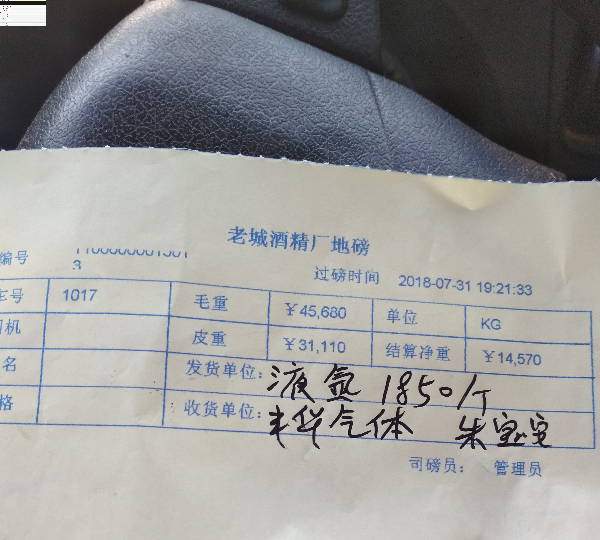 老城酒精厂地磅
编号
3
过磅时间 2018-07-31 19:21:33
车号 1017 毛重 ￥45,680 单位 KG
司机 皮重 ￥31,110 结算净重 ￥14,570
名 发货单位: 液氩 1850/T
格 收货单位: 丰华气体 朱宝宝
司磅员: 管理员